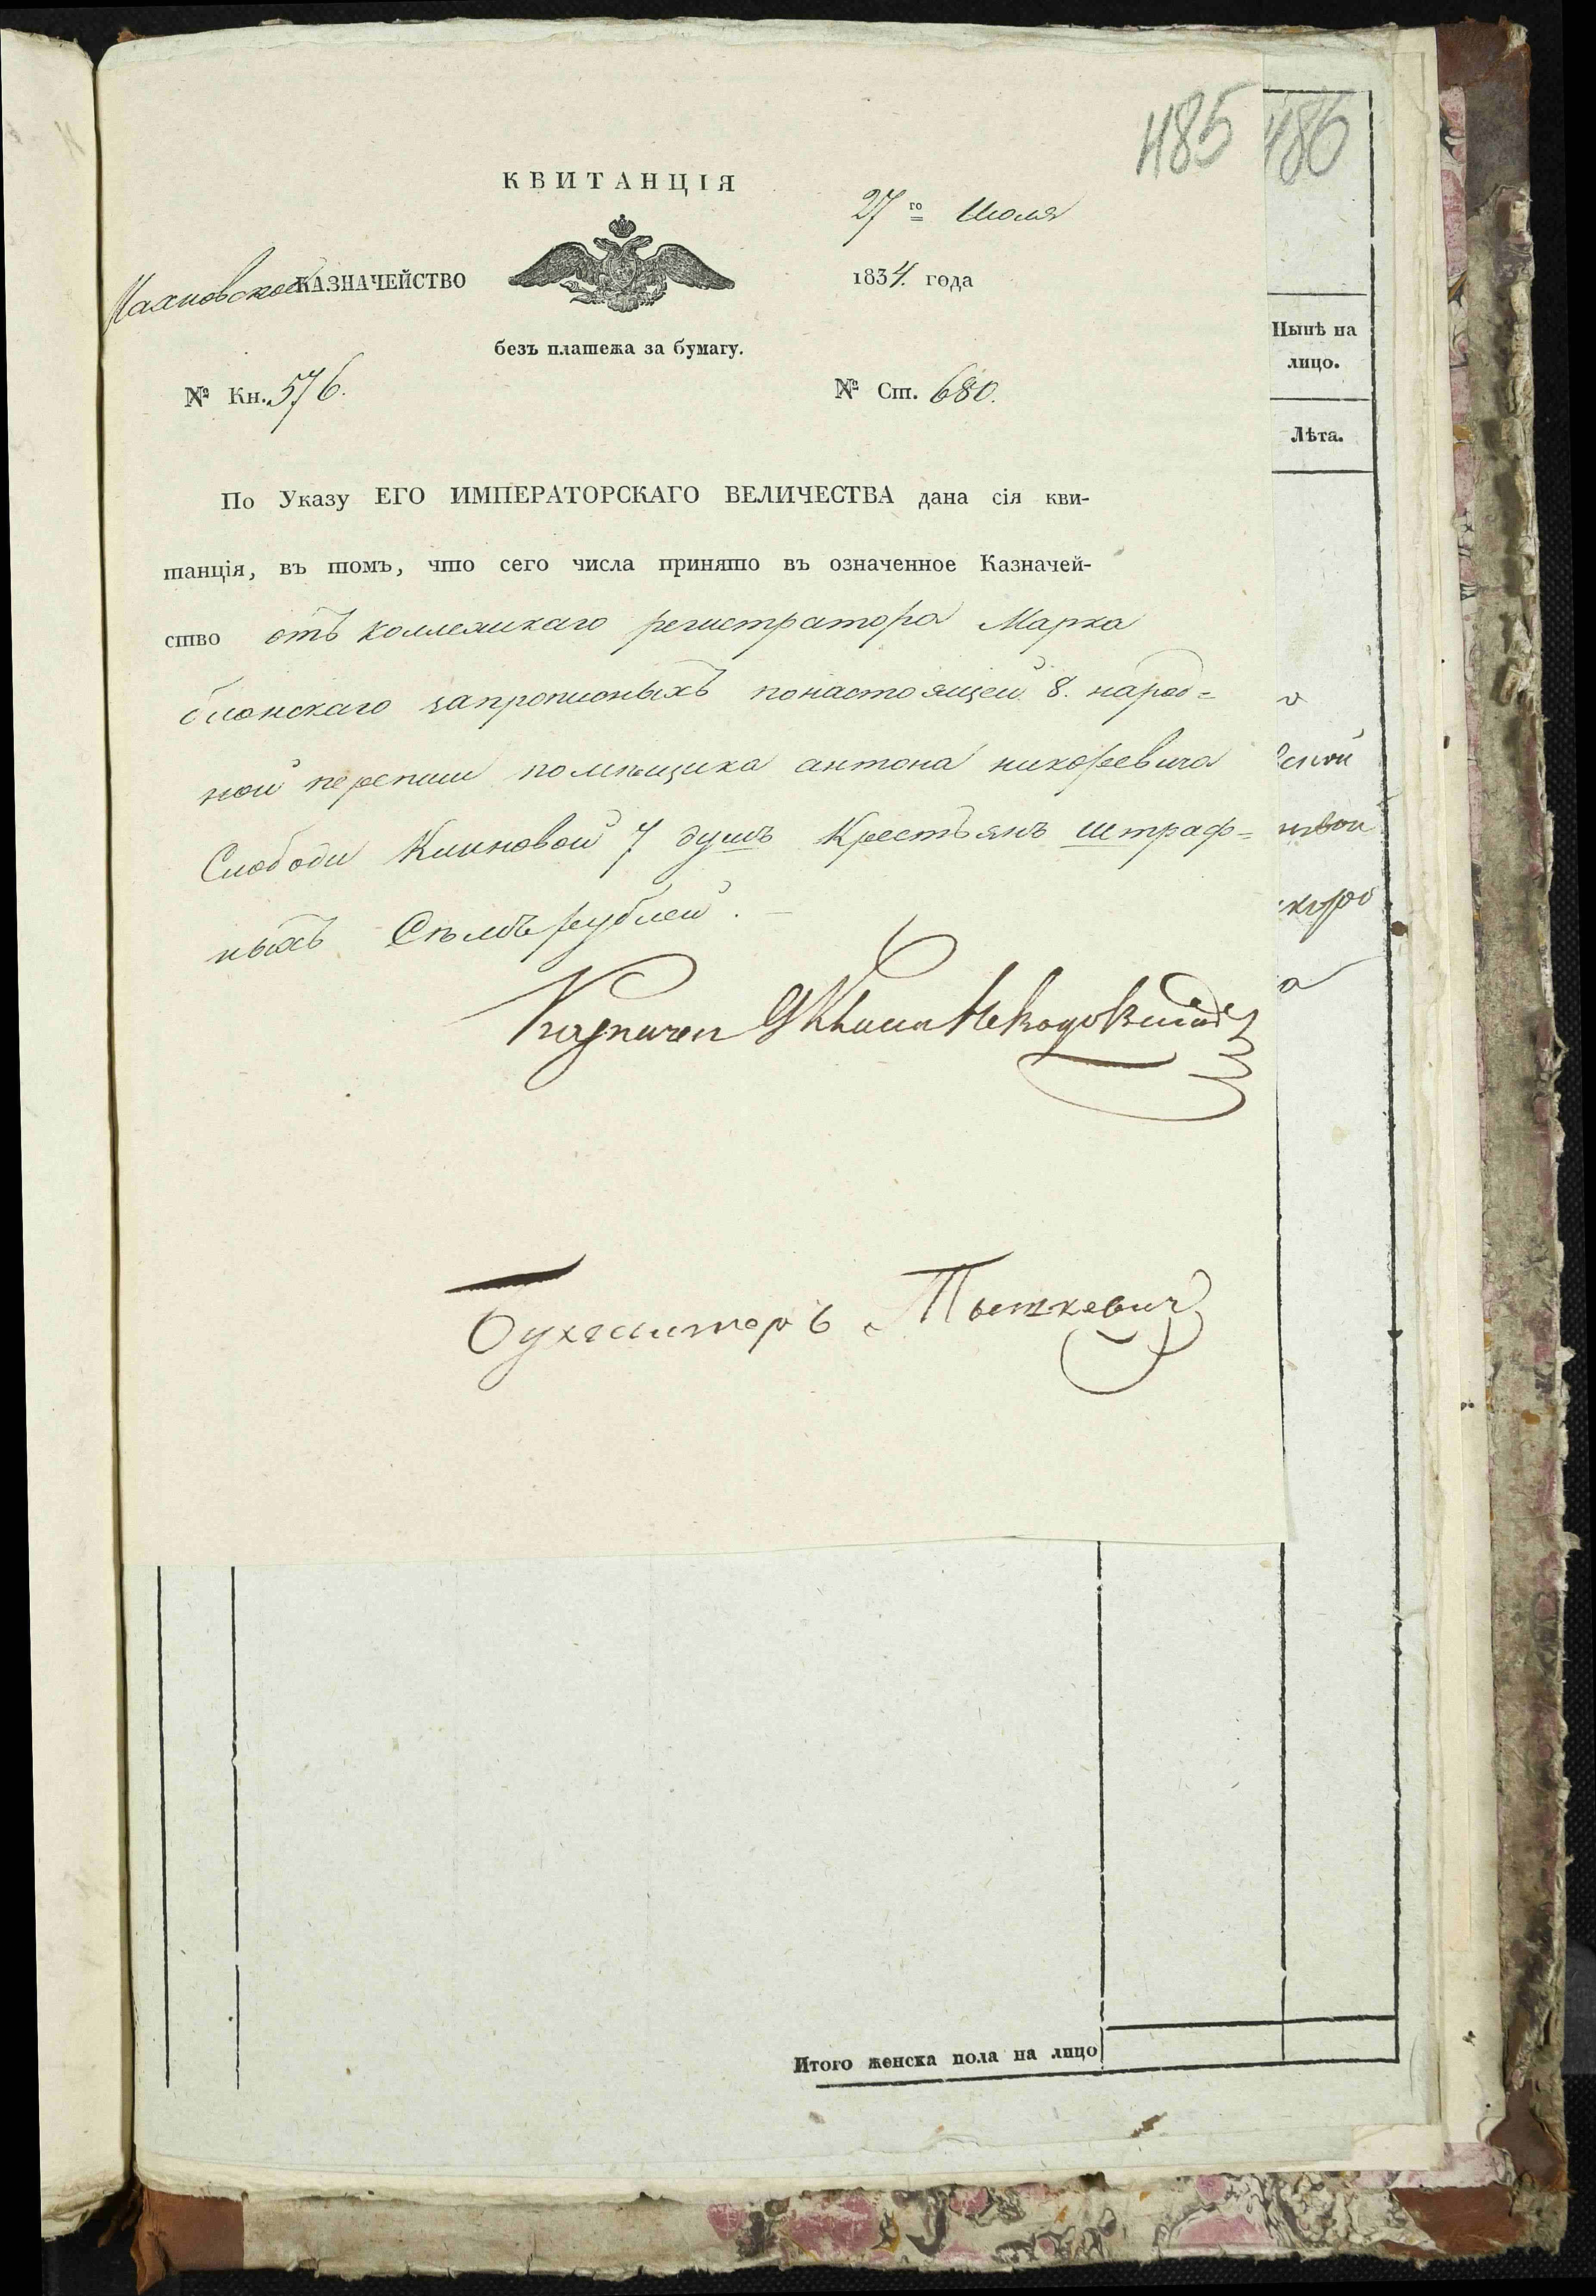 485
486
КВИТАНЦІЯ
27го Июля
Махновское КАЗНАЧЕЙСТВО
1834. года
безъ платежа за бумагу.
№ Кн. 576.
№ Ст. 680.
По Указу ЕГО ИМПЕРАТОРСКАГО ВЕЛИЧЕСТВА дана сія кви-
танція, въ томъ, что сего числа принято въ означенное Казначей-
ство отъ коллежскаго регистратора Марка
понастоящей 8. народ-
ной переписи помѣщика антона
Слободи Клиновой 7 душъ Крестъянъ штраф-
ныхъ Семъ рублей.
Казначей
Бухгалтеръ Тышкевич
Нынѣ на
лицо.
Лѣта.
Итого женска пола на лицо